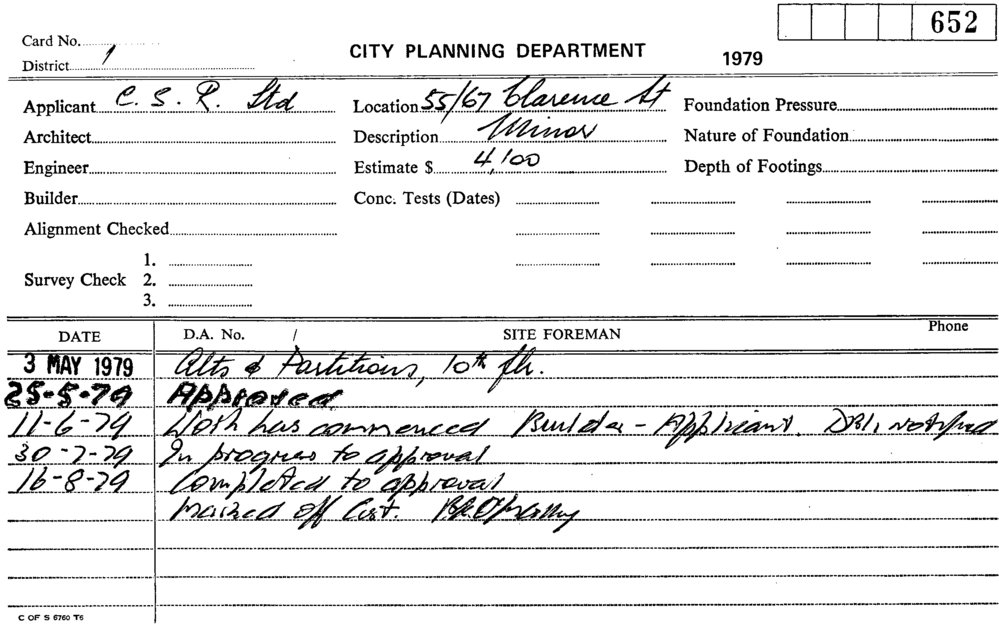 652
Card No.
District 1
CITY PLANNING DEPARTMENT 1979
Applicant C. S. R. Ltd Location 55/67 Clarence St Foundation Pressure
Architect Description Minor Nature of Foundation
Engineer Estimate $ 4,100 Depth of Footings
Builder Conc. Tests (Dates)
Alignment Checked
1.
Survey Check 2.
3.
DATE D.A. No. / SITE FOREMAN Phone
3 MAY 1979 Alts & Partitions, 10th flr.
25-5-79 Approved
11-6-79 Work has commenced Builder - Applicant. notified
30-7-79 In progress to approval
16-8-79 Completed to approval
marked off List.
C OF S 6760 T6